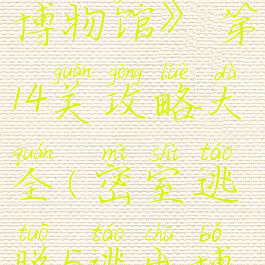 博物馆》 第
guān gōng lüè dà
14关攻略大
quán mì shì táo
全(密室逃
tuō táo chū bó
脱5逃出博